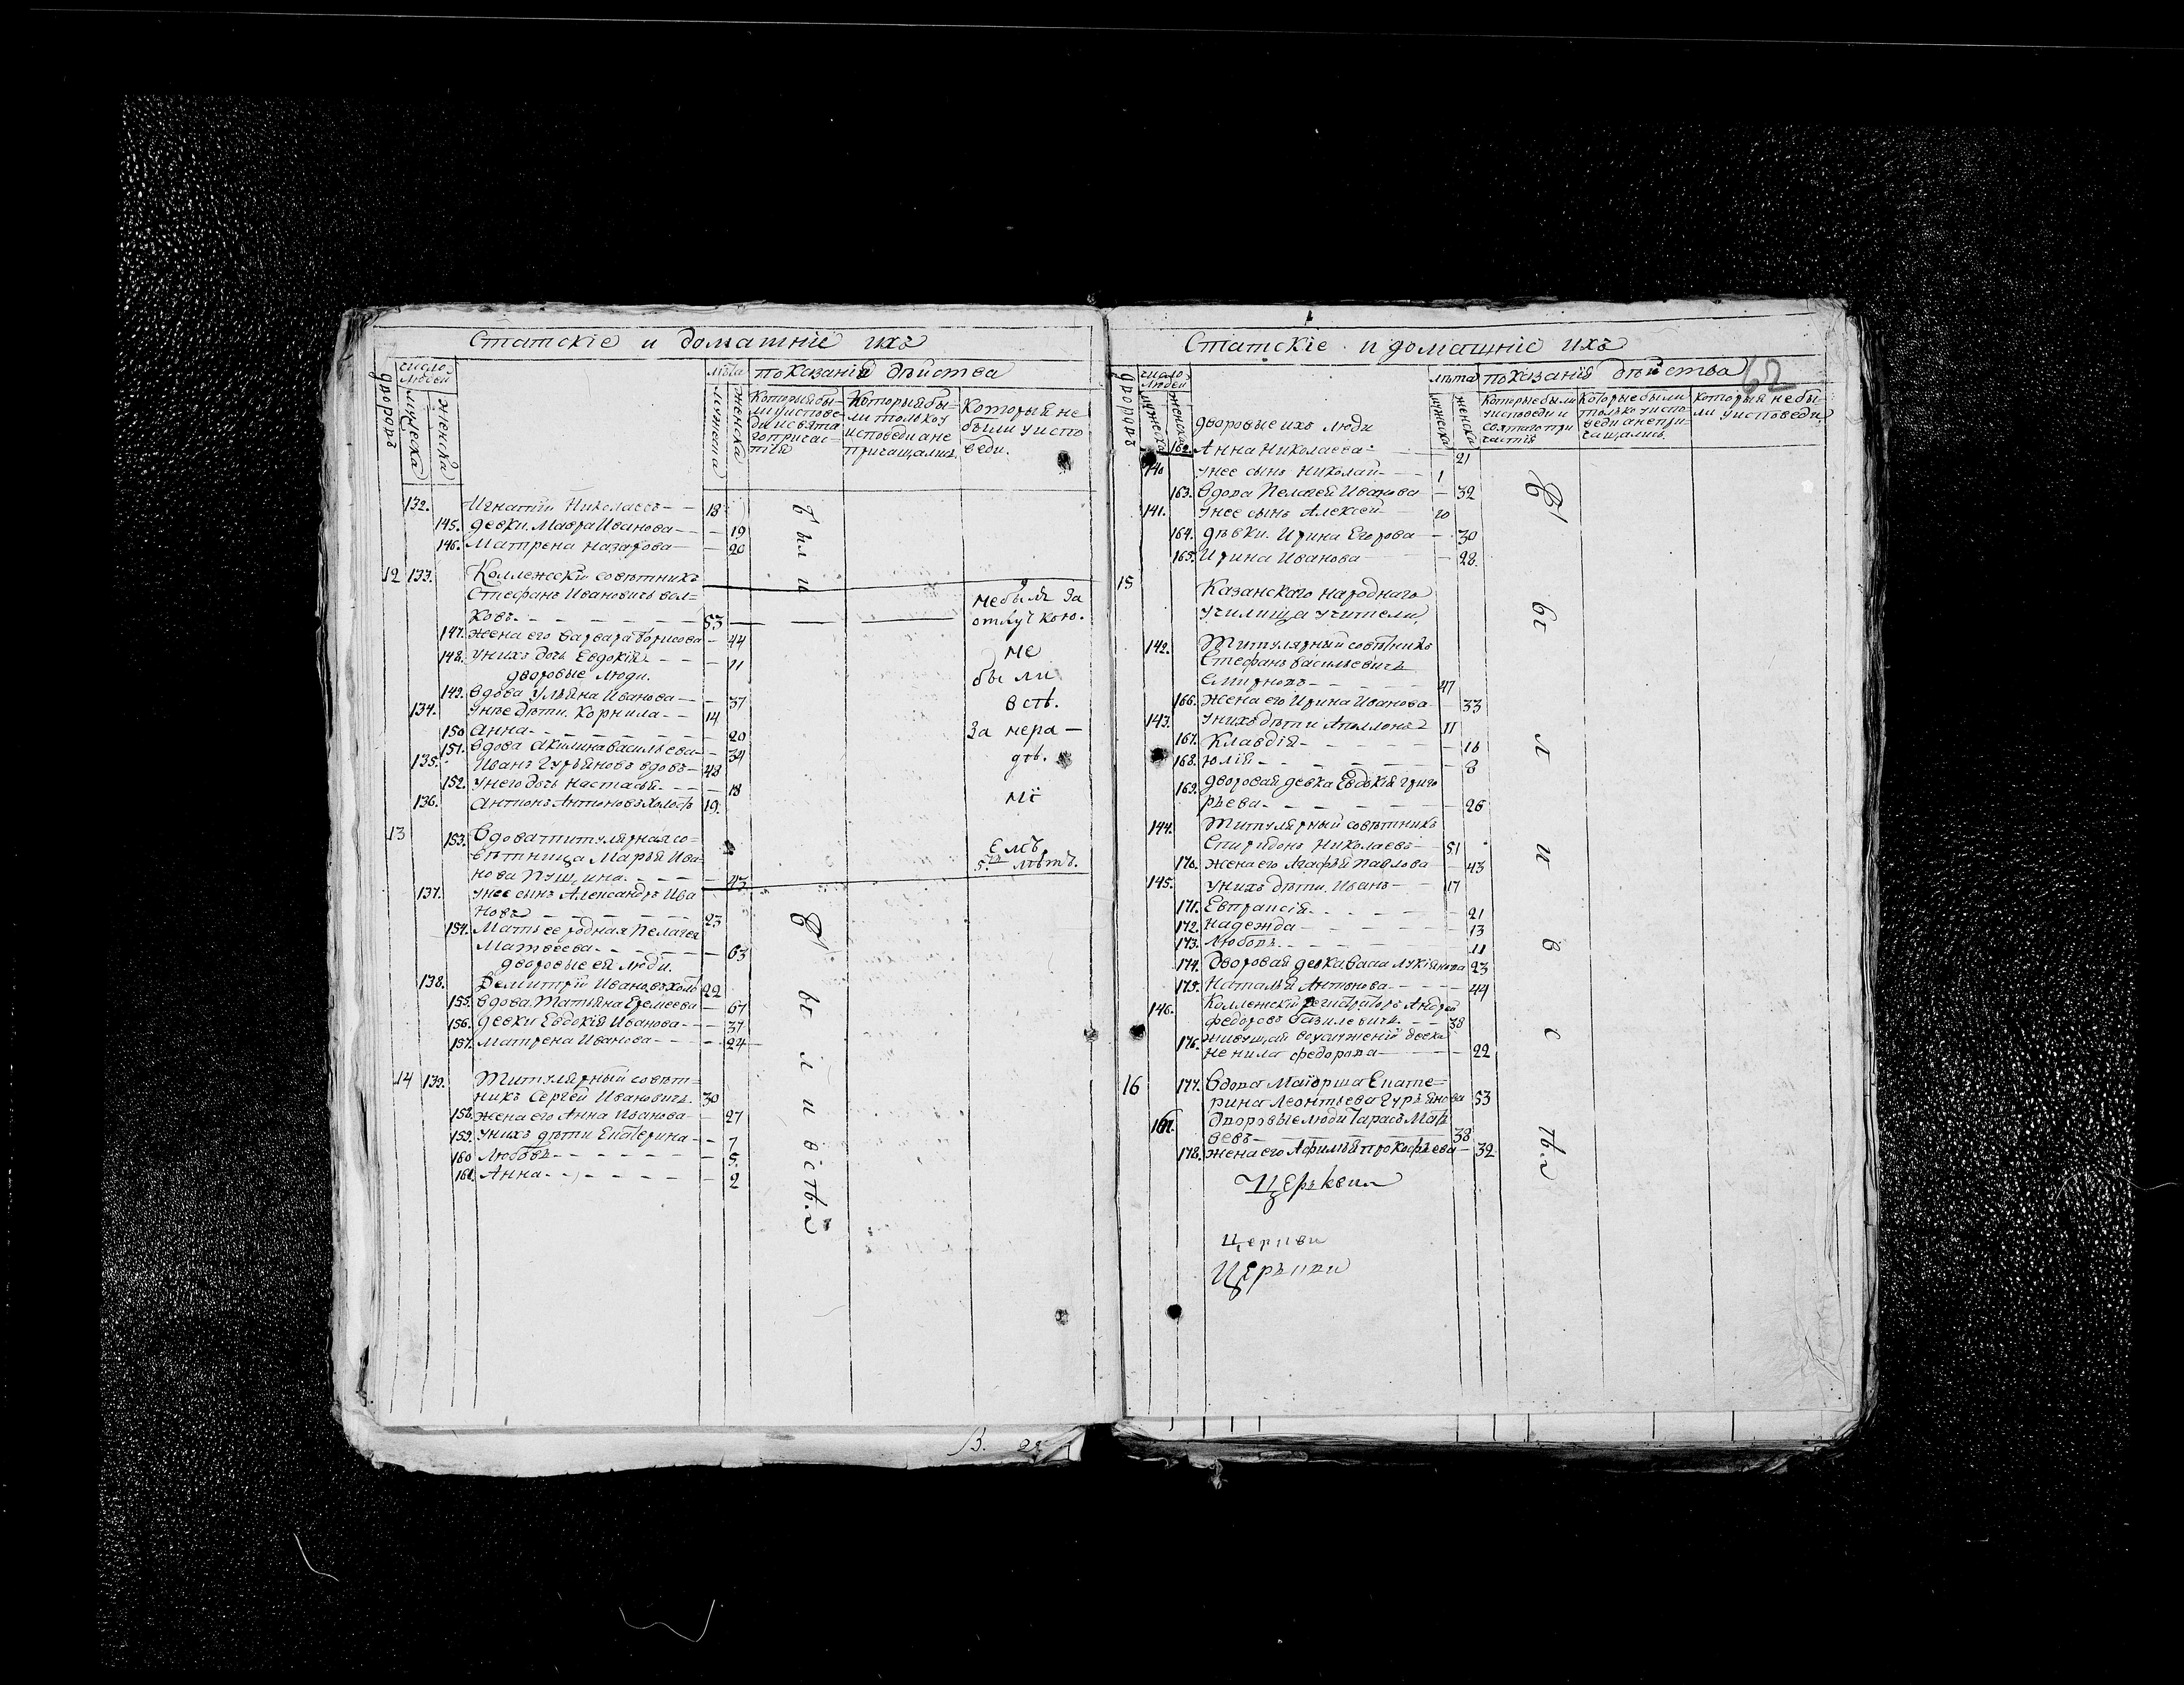 Статскіе и домашніе ихъ
число людей
лѣта
показаніи дѣйства
дворовъ
мужеска
женска
мужеска
женска
Которыя бы-
ли у испове-
ди и свята
го причас-
тія
Которыя бы-
ли только у
исповеди а не
причащались.
Которыя не
были у испо
веди.
132. Игнатій Николаевъ 18
145. девки. Мавра Иванова 19
146. Матрена Назарова 20
были
12 133. Коллежскій совѣтникъ
Стефанъ Ивановичь Вол=
ковъ 53
не былъ за
отлучкою.
147. жена его Варвара Борисова 44
148. У нихъ дочь Евдокія 11
дворовые люди.
149. вдова Ульяна Иванова 37
134. У нее дѣти. Корнила 14
150 Анна 20
151. вдова Акилина Васильева 39
135. Иванъ Гурьяновъ вдовъ 48
152. У него дочь Настасья 18
136. Антонъ Антоновъ холостъ 19.
не
были
всѣ.
За нера-
дѣ.
ні
емъ
5. лѣтъ.
13 153. Вдова титулярная со=
вѣтница Марья Ива
нова Пущина 43
137. У нее сынъ Александръ Ива
новъ 23
154. Мать ее родная Пелагея
Матвеева 63
дворовые ея люди.
138. Демитрій Ивановъ холо 22
155. вдова. Татьяна Еремеева 67
156. девки Евдокія Иванова 37
157. Матрена Иванова 24
14 139. Титулярный совѣт=
никъ Сергей Ивановичь. 30
158. жена его Анна Иванова 27
159. У нихъ дѣти Екатерина 7
160 Любовь 5.
161. Анна 2
были всѣ.
В.
Статскіе и домашніе ихъ
62
число людей
лѣта
показанія дѣйства
дворовъ
мужеска
женска
дворовые ихъ люди
мужеска
женска
Которые были
у исповеди и
святаго при
частія
Которые были
только у испо-
веди а не при-
чащались.
которыя не бы-
ли у исповеди
162. Анна Николаева 21
140 У нее сынъ Николай 1
163. Вдова Пелагея Иванова 32
141. У нее сынъ Алексей 20
164. дѣвки. Ирина Егорова 30
165. Ирина Иванова 28.
15 Казанскаго народнаго
училища учители,
142. Титулярный совѣтникъ
Стефанъ Васильевичь
Смирновъ 47
166. жена его Ирина Иванова 33
143. У нихъ дѣти Аполлонъ 11
167. Клавдія 16
168. Юлія 8
169. дворовая девка Евдокія Григо
рьева 26
144. Титулярный совѣтникъ
Спиридонъ Николаевъ 51
170. жена его Агафья Павлова 43
145. У нихъ дѣти. Иванъ 17
171. Евпраксія 21
172. Надежда 13
173. Любовь 11
174. Дворовая девка. Васа Лукіянова 23
175. Наталья Антонова 44
146. Коллежскій регистраторъ Андрей
Федоровъ 38
176. живущая в услуженіи девка
Ненила Федорова 22
16 177. Вдова Маіорша Екате=
рина Леонтьева Гурьянова 53
147. Дворовые люди Тарасъ Мат
веевъ 38
178. жена его Афимья Прокофьева 32
были всѣ
Церькви
Церкви
Церькви